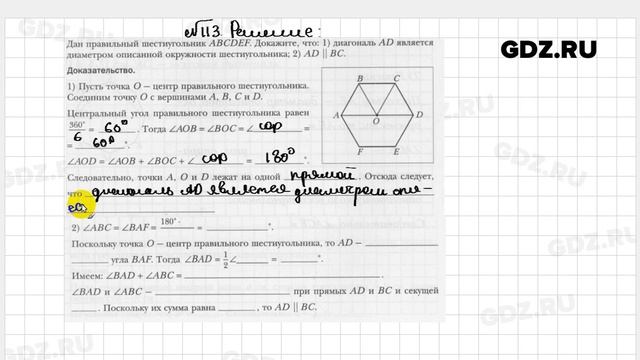 №113. Решение:
GDZ.RU
Дан правильный шестиугольник ABCDEF. Докажите, что: 1) диагональ AD является
диаметром описанной окружности шестиугольника; 2) AD || BC.
Доказательство.
1) Пусть точка O — центр правильного шестиугольника.
Соединим точку O с вершинами A, B, C и D.
Центральный угол правильного шестиугольника равен
360°/6 = 60°. Тогда ∠AOB = ∠BOC = ∠ COD =
= 60°.
∠AOD = ∠AOB + ∠BOC + ∠ COD = 180°
Следовательно, точки A, O и D лежат на одной прямой. Отсюда следует,
что диагональ AD является диаметром опи-
B C
A O D
F E
2) ∠ABC = ∠BAF = 180°· = °.
Поскольку точка O — центр правильного шестиугольника, то AD —
угла BAF. Тогда ∠BAD = 1/2 ∠ = °.
Имеем: ∠BAD + ∠ABC = .
∠BAD и ∠ABC — при прямых AD и BC и секущей
. Поскольку их сумма равна , то AD || BC.